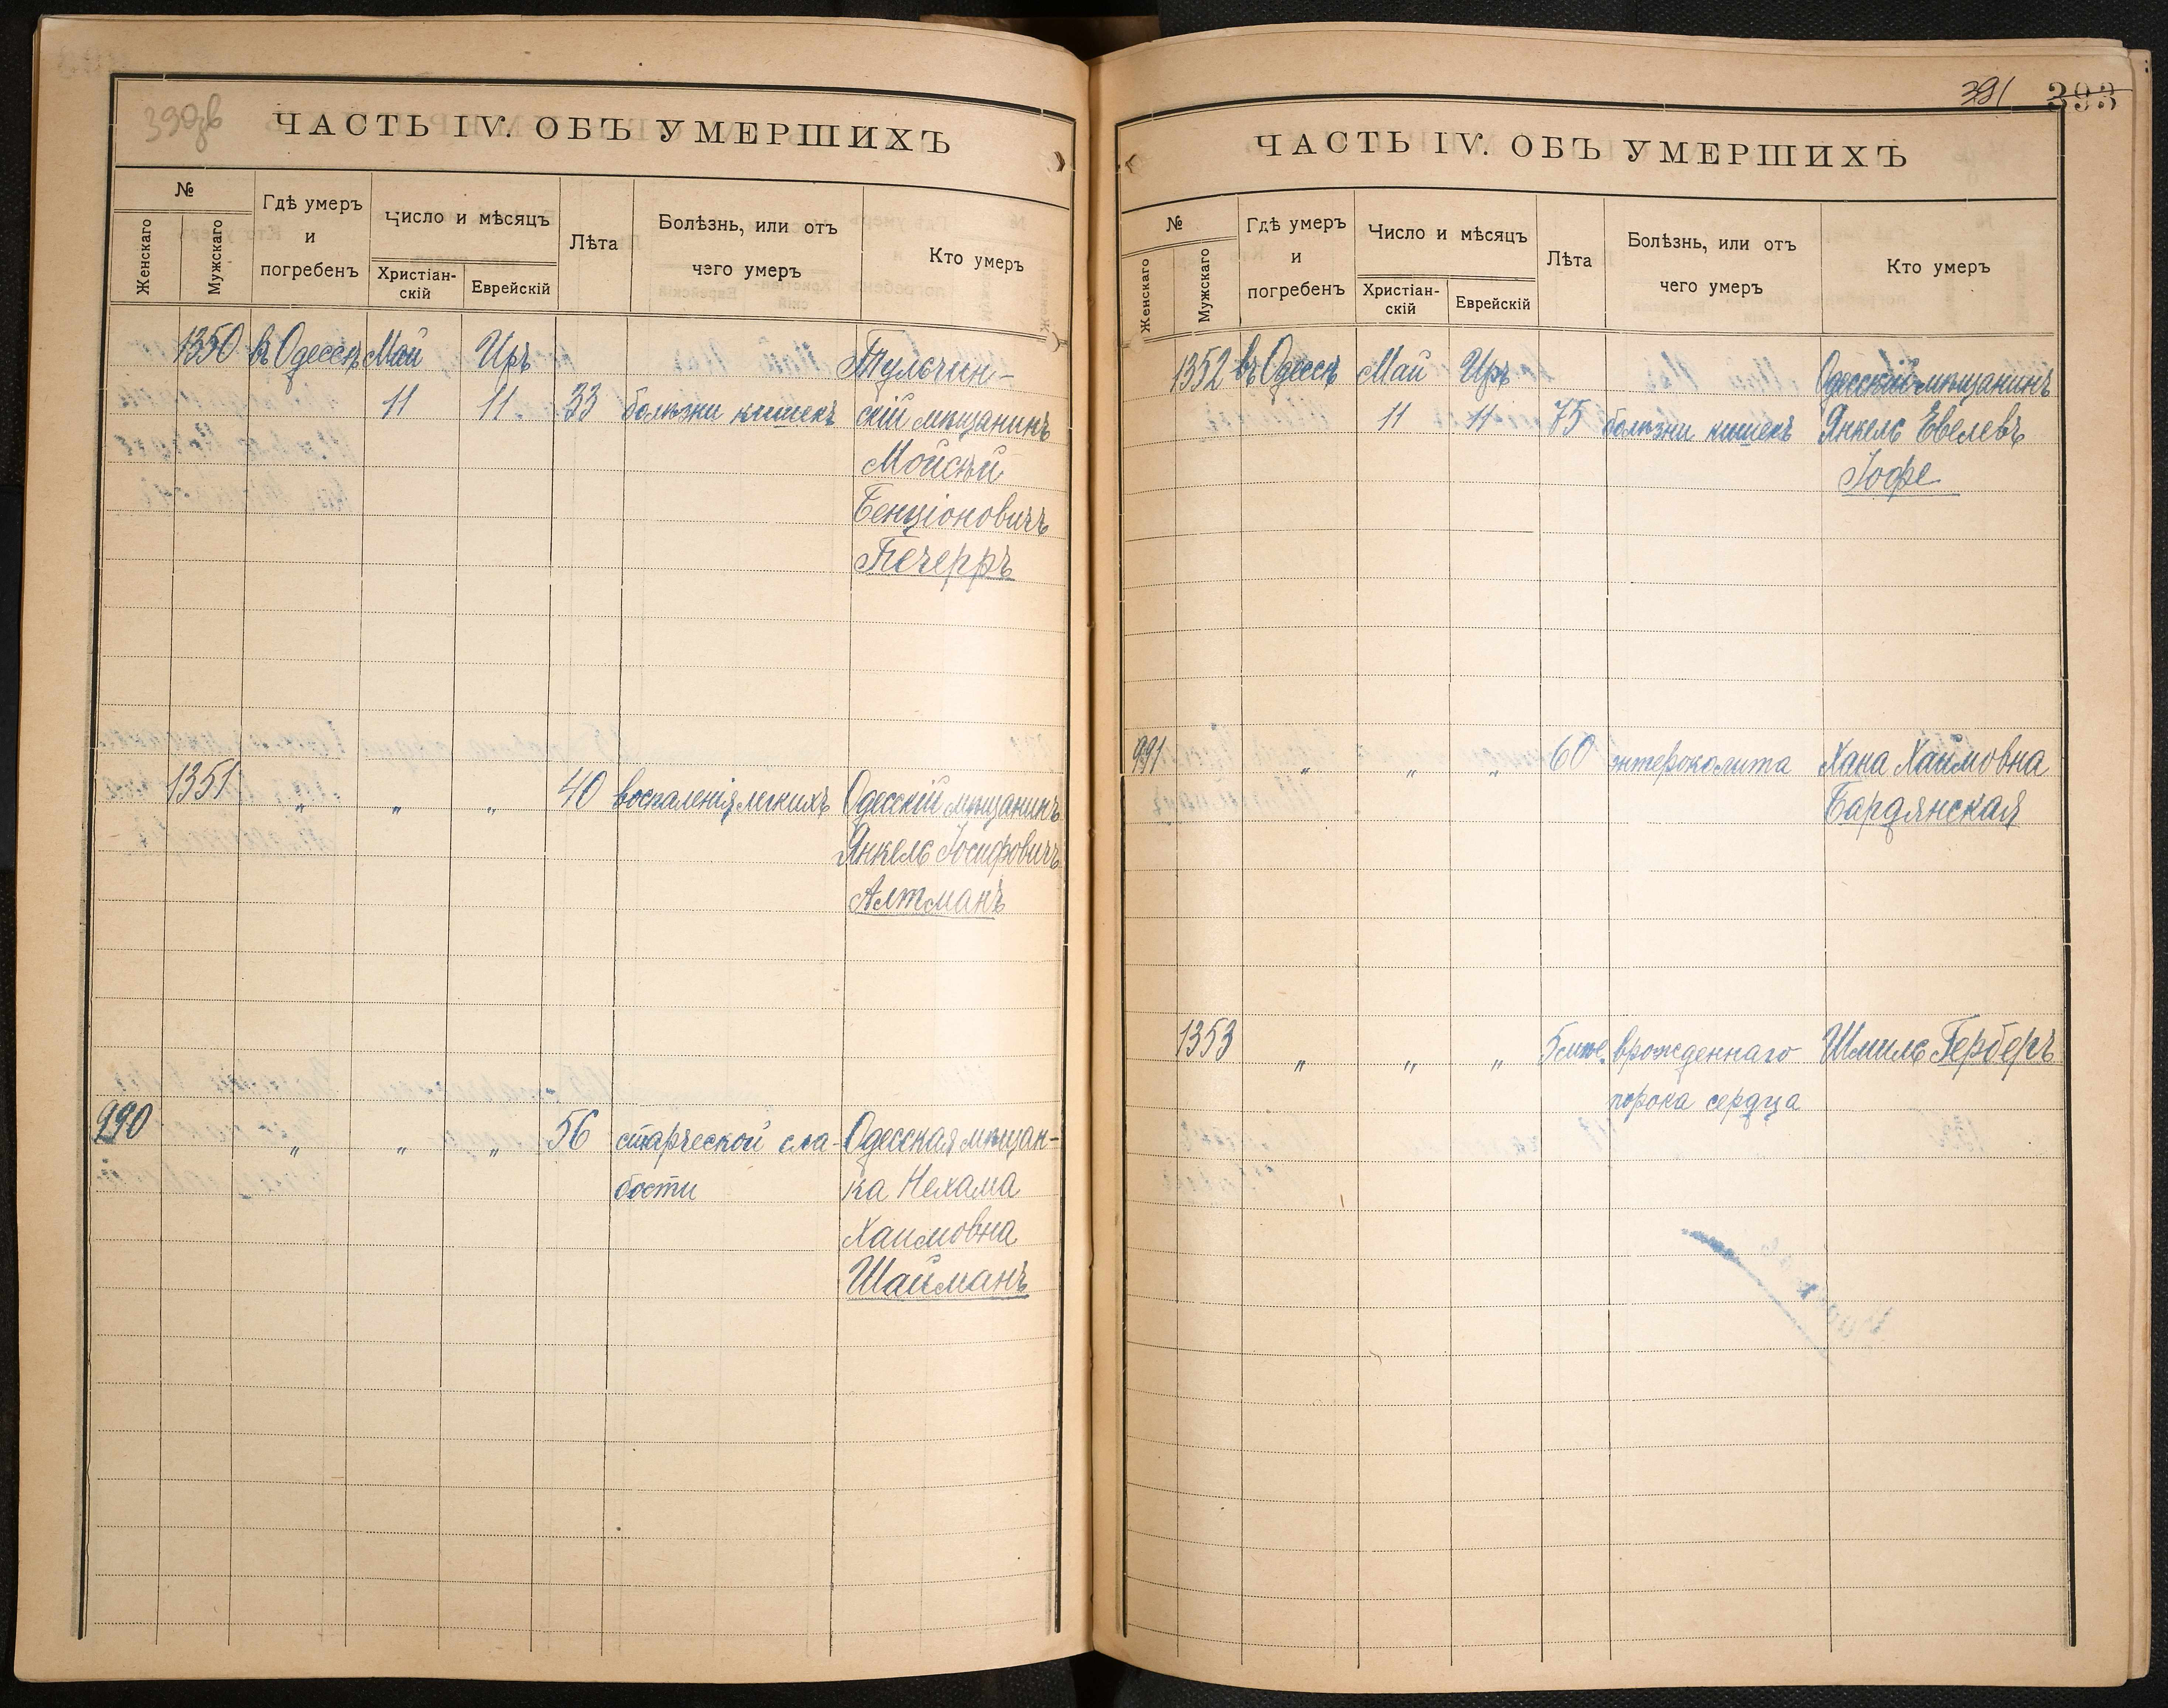 390об
ЧАСТЬ IV. ОБЪ УМЕРШИХЪ
№
Женскаго
Мужскаго
Гдѣ умеръ
и
погребенъ
Число и мѣсяцъ
Христіан-
скій
Еврейскій
Лѣта
Болѣзнь, или отъ
чего умеръ
Кто умеръ
1350 въ Одессѣ Май Иръ Тульчин-
11 11 33 болѣзни кишекъ скій мѣщанинъ
Мойсѣй
Бенціоновичъ
Печерръ
1351 " " " 40 воспаленія легкихъ Одесскій мѣщанинъ
Янкель Іосифовичъ
Алтманъ
990 " " " 56 старческой сла- Одесская мѣщан-
бости ка Нехама
Хаимовна
Шайманъ
391 393
ЧАСТЬ IV. ОБЪ УМЕРШИХЪ
№
Женскаго
Мужскаго
Гдѣ умеръ
и
погребенъ
Число и мѣсяцъ
Христіан-
скій
Еврейскій
Лѣта
Болѣзнь, или отъ
чего умеръ
Кто умеръ
1352 въ Одессѣ Май Иръ Одесскій мѣщанинъ
11 11 75 болѣзни кишекъ Янкель Евелевъ
Іофе
991 " " " 60 энтероколита Хана Хаимовна
Бардянская
1353 " " " 5 врожденнаго Шмиль Герберъ
порока сердца